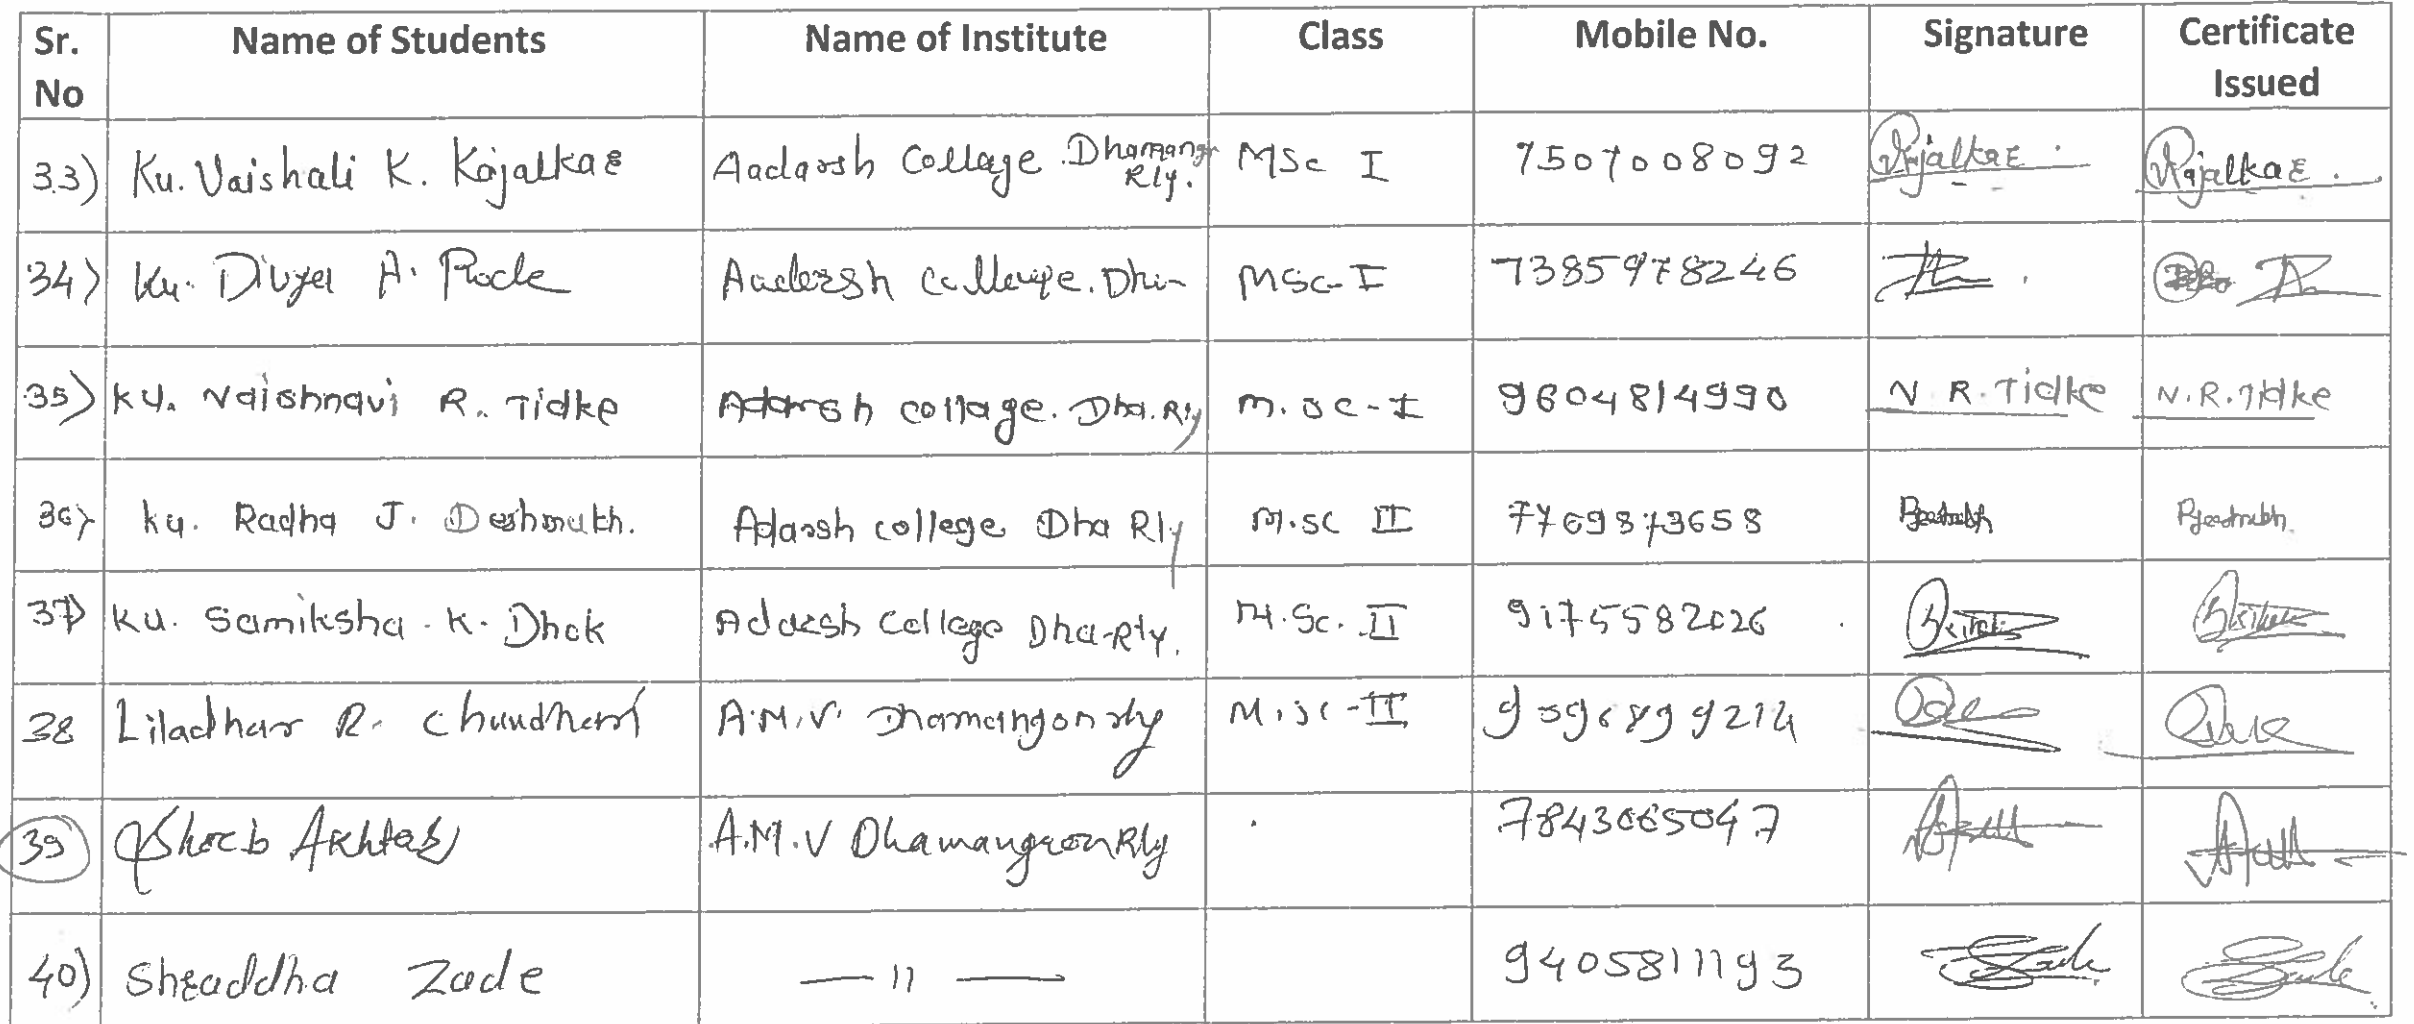 Sr. No Name of Students Name of Institute Class Mobile No. Signature Certificate Issued
33) Ku. Vaishali K. Kajalkar Aadarsh Collage Dhamang Rly. MSc I 7507008092 Kajalkar Kajalkar
34) Ku. Divya A. Aadarsh College. Dhn MSc-I 7385978246
35) Ku. Vaishnavi R. Tidke Adarsh collage. Dha. Rly M.sc-I 9604814990 N. R. Tidke N. R. Tidke
36) ku. Radha J. Deshmukh. Adarsh college Dha Rly M.sc II 7769873658
37) Ku. Samiksha K. Dhok Adarsh College Dha-Rly. M.Sc. II 9175582026
38 Liladhar R. Chaudhari A.M.V. Dhamangon rly M.Sc-II
39 Shoeb Akhtar A.M.V Dhamangaon Rly
40) Shraddha Zade — 11 — 9405811193 Zade